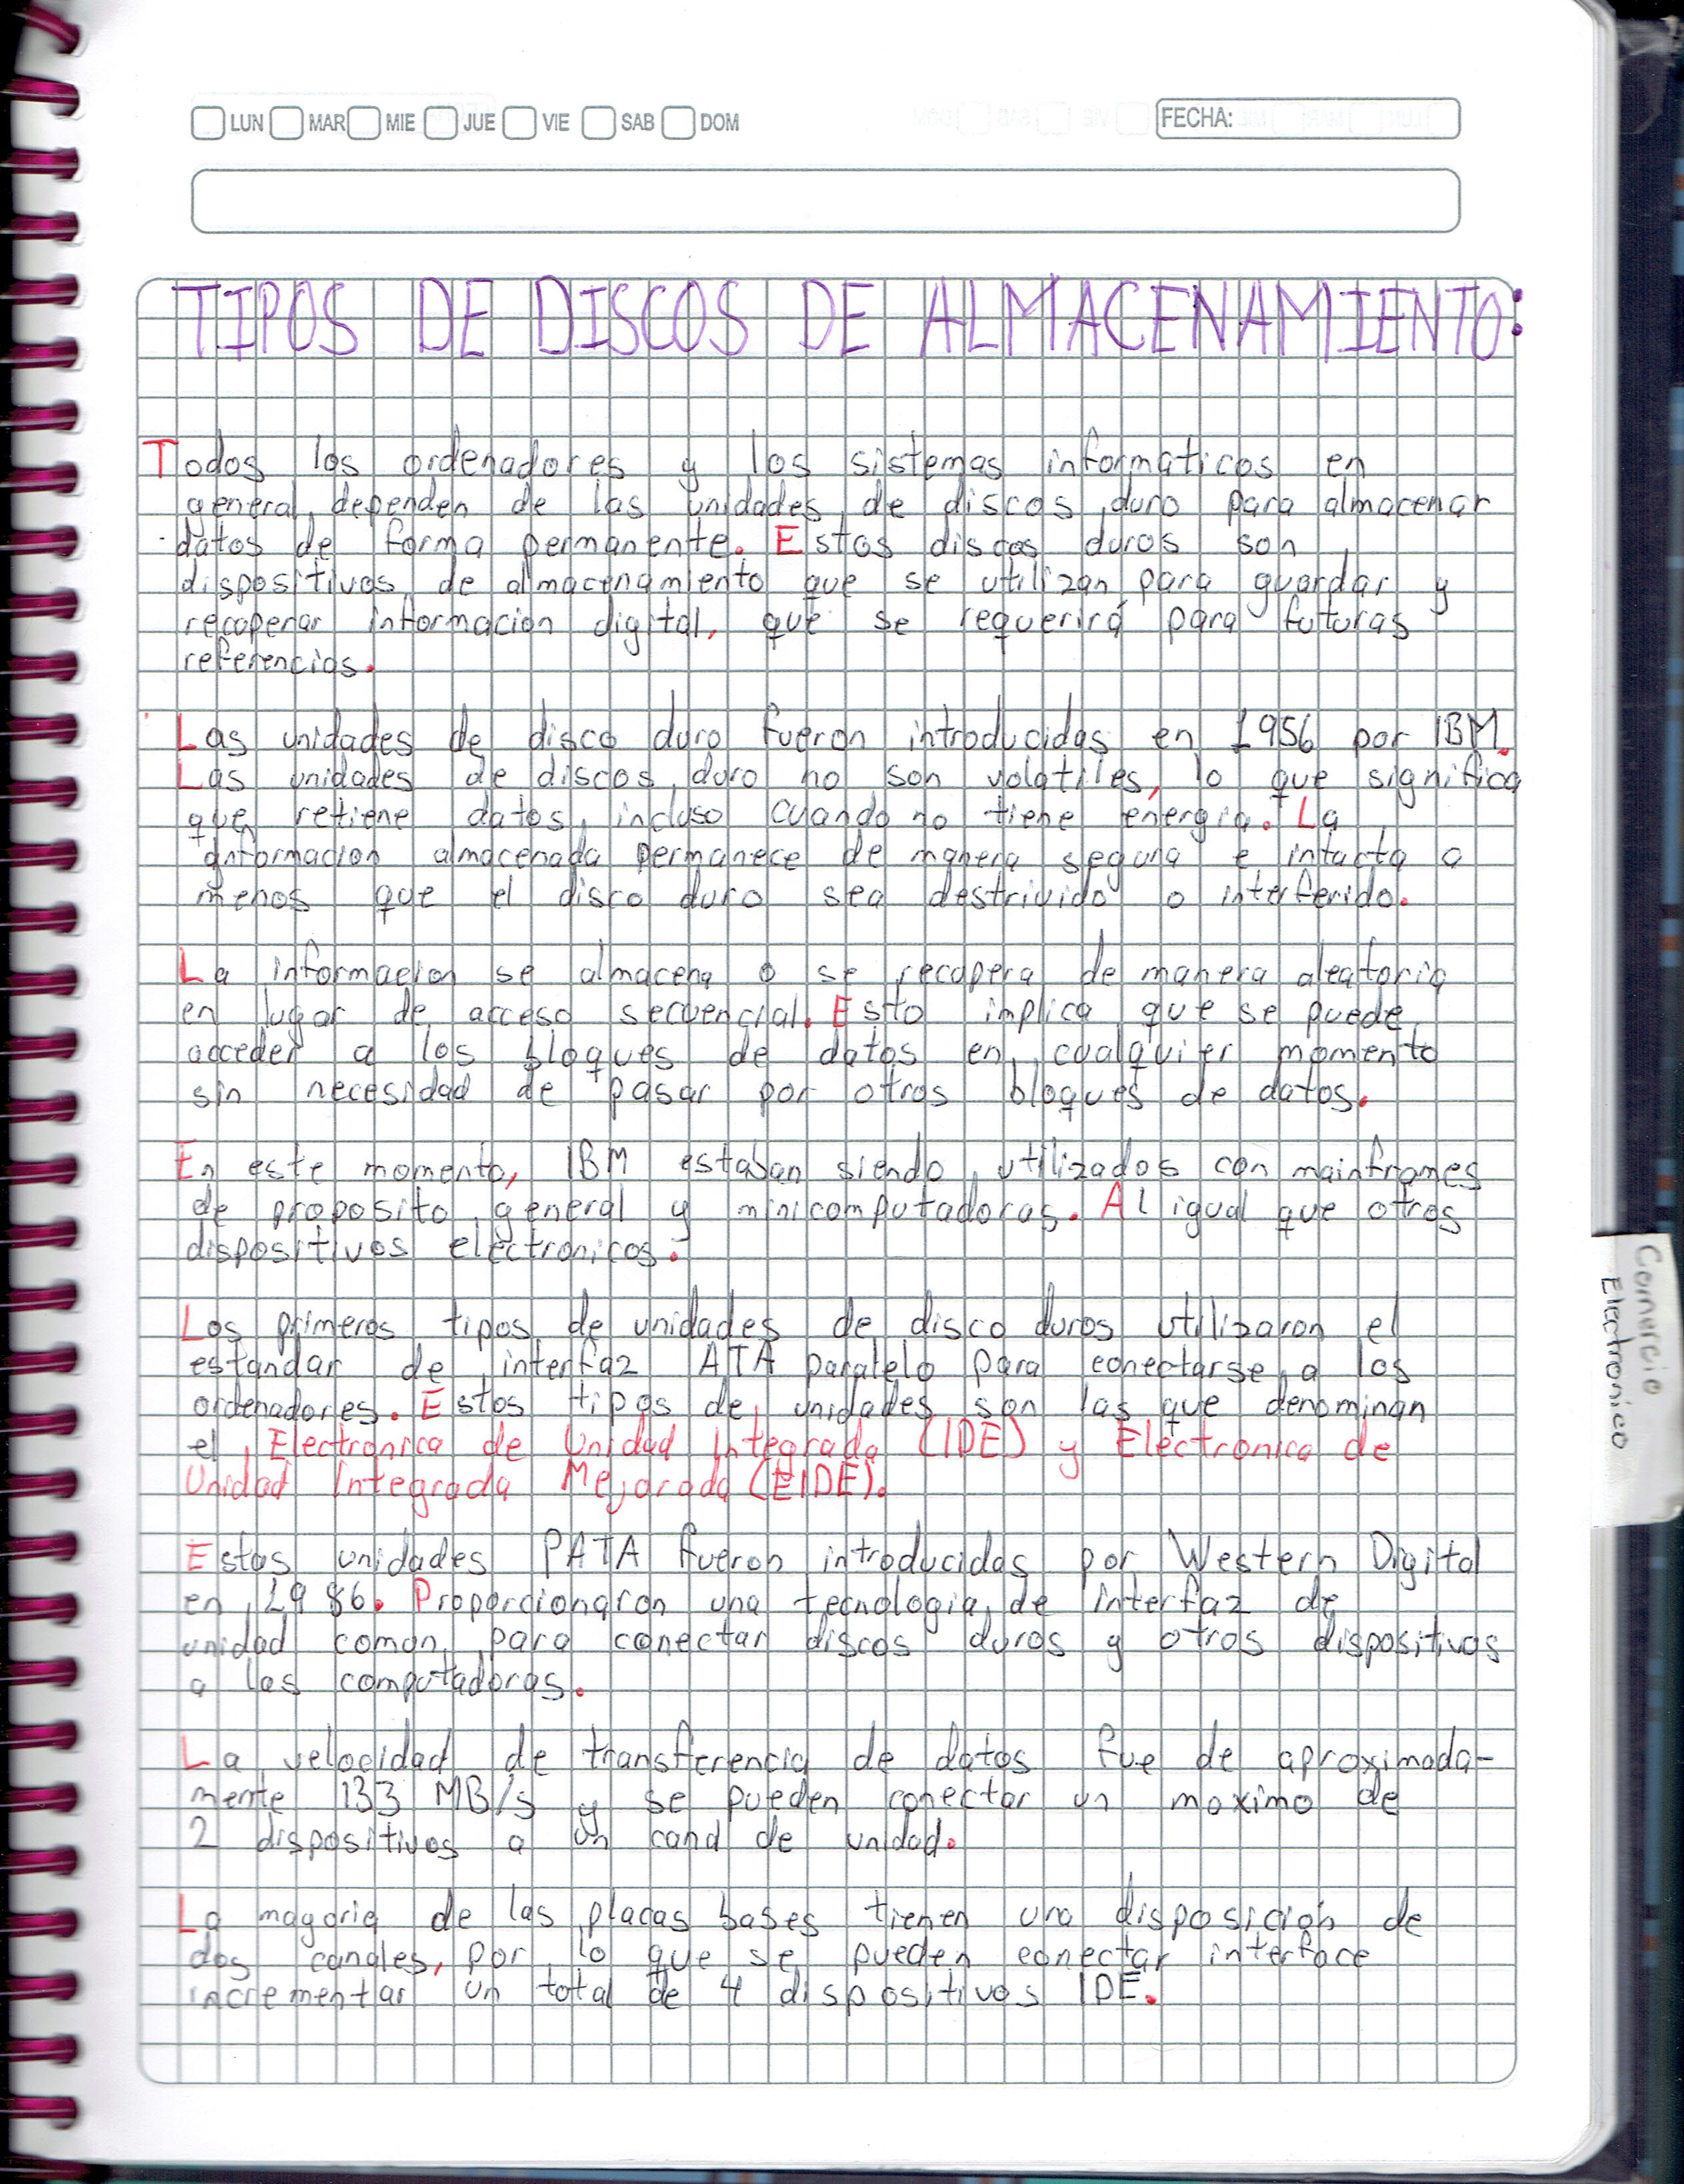 LUN MAR MIE JUE VIE SAB DOM FECHA:
TIPOS DE DISCOS DE ALMACENAMIENTO:
Todos los ordenadores y los sistemas informáticos en
general dependen de las unidades de discos duro para almacenar
datos de forma permanente. Estos discos duros son
dispositivos de almacenamiento que se utilizan para guardar y
recuperar informacion digital, que se requerirá para futuras
referencias.
Las unidades de disco duro fueron introducidas en 1956 por IBM.
Las unidades de discos duro no son volatiles, lo que significa
que retiene datos incluso cuando no tiene energia. La
informacion almacenada permanece de manera segura e intacta a
menos que el disco duro sea destriuido o interferido.
La informacion se almacena o se recupera de manera aleatoria
en lugar de acceso secuencial. Esto implica que se puede
acceder a los bloques de datos en cualquier momento
sin necesidad de pasar por otros bloques de datos.
En este momento, IBM estaban siendo utilizados con mainframes
de proposito general y minicomputadoras. Al igual que otros
dispositivos electronicos.
Los primeros tipos de unidades de disco duros utilizaron el
estandar de interfaz ATA paralelo para conectarse a los
ordenadores. Estos tipos de unidades son las que denominan
el Electronica de Unidad Integrada (IDE) y Electronica de
Unidad Integrada Mejorada (EIDE).
Estas unidades PATA fueron introducidas por Western Digital
en 1986. Proporcionaron una tecnologia de interfaz de
unidad comun para conectar discos duros y otros dispositivos
a las computadoras.
La velocidad de transferencia de datos fue de aproximada-
mente 133 MB/s y se pueden conectar un maximo de
2 dispositivos a un canal de unidad.
La mayoria de las placas bases tienen una disposición de
dos canales, por lo que se pueden conectar interface
incrementar un total de 4 dispositivos IDE.
Comercio
Electronico